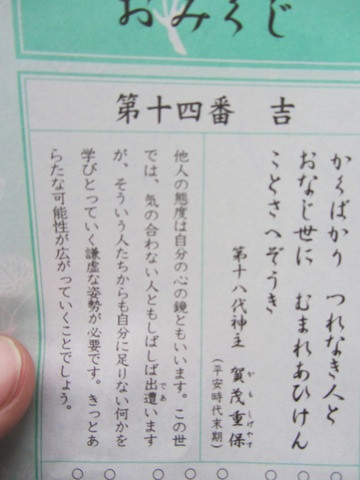 おみくじ
第十四番 吉
かくばかり つれなき人と
おなじ世に むまれあひけん
ことさへぞうき
第十八代神主 賀茂重保
かもしげやす
(平安時代末期)
他人の態度は自分の心の鏡ともいいます。この世
では、気の合わない人ともしばしば出遭います
であ
が、そういう人たちからも自分に足りない何かを
学びとっていく謙虚な姿勢が必要です。きっとあ
らたな可能性が広がっていくことでしょう。